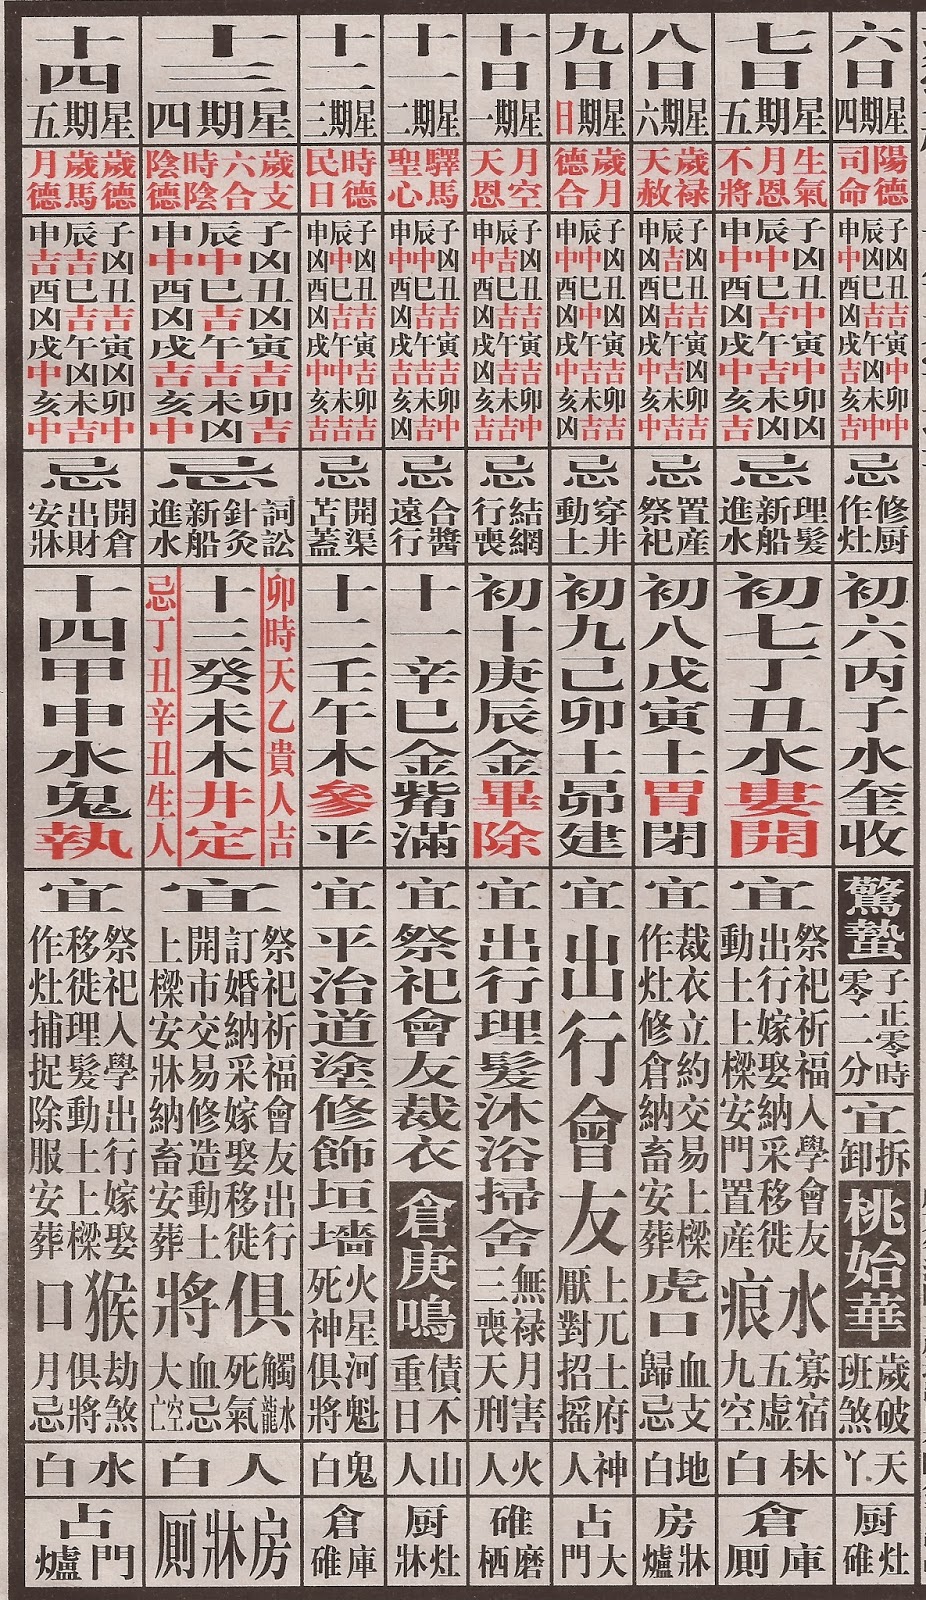 六日
星期四
陽德
司命
子凶丑吉寅中卯中
辰凶巳吉午凶未中
申中酉凶戌吉亥吉
忌
修厨
作灶
初六丙子水奎收
驚蟄
子正零時
零二分
宜
拆
卸
桃始華
歲破
班煞
天丫
厨灶碓
七日
星期五
生氣
月恩
不將
子凶丑中寅中卯凶
辰中巳吉午吉未凶
申中酉凶戌中亥吉
忌
理髮
新船
進水
初七丁丑水婁開
宜
祭祀祈福入學會友
出行嫁娶納采移徙
動土上樑安門置産
水痕
寡宿
五虛
九空
林白
倉庫厠
八日
星期六
歲禄
天赦
子凶丑吉寅吉卯吉
辰吉巳吉午吉未吉
申凶酉凶戌中亥中
忌
置産
祭祀
初八戊寅土胃閉
宜
裁衣立約交易上樑
作灶修倉納畜安葬
虎口
血支
歸忌
地白
房牀爐
九日
星期日
歲月
德合
子凶丑凶寅吉卯吉
辰中巳中午吉未吉
申中酉凶戌中亥凶
忌
穿井
動土
初九己卯土昴建
宜
出行會友
上兀土府
厭對招摇
神人
占大門
十日
星期一
月空
天恩
子凶丑吉寅吉卯中
辰吉巳吉午凶未吉
申中酉凶戌凶亥吉
忌
結網
行喪
初十庚辰金畢除
宜
出行理髮沐浴掃舍
無禄月害
三喪天刑
火人
碓磨栖
十一
星期二
驛馬
聖心
子凶丑吉寅吉卯中
辰中巳吉午吉未吉
申中酉凶戌吉亥凶
忌
合醬
遠行
十一辛巳金觜滿
宜
祭祀會友裁衣
倉庚鳴
債不
重日
山人
厨灶牀
十二
星期三
時德
民日
子凶丑吉寅吉卯吉
辰中巳吉午中未吉
申凶酉凶戌中亥吉
忌
開渠
苫蓋
十二壬午木參平
宜
平治道塗修飾垣墻
火星河魁
死神俱將
鬼白
倉庫碓
十三
星期四
歲支
六合
時陰
陰德
子凶丑凶寅吉卯吉
辰中巳吉午吉未凶
申中酉凶戌吉亥中
忌
詞訟
針灸
新船
進水
卯時天乙貴人吉
十三癸未木井定
忌丁丑辛丑生人
宜
祭祀祈福會友出行
訂婚納采嫁娶移徙
開市交易修造動土
上樑安牀納畜安葬
俱將
觸水龍
死氣
血忌
大空亡
人白
房牀厠
十四
星期五
歲德
歲馬
月德
子凶丑吉寅凶卯中
辰吉巳吉午凶未吉
申吉酉凶戌中亥中
忌
開倉
出財
安牀
十四甲申水鬼執
宜
祭祀入學出行嫁娶
移徙理髮動土上樑
作灶捕捉除服安葬
猴口
劫煞
俱將
月忌
水白
占門爐